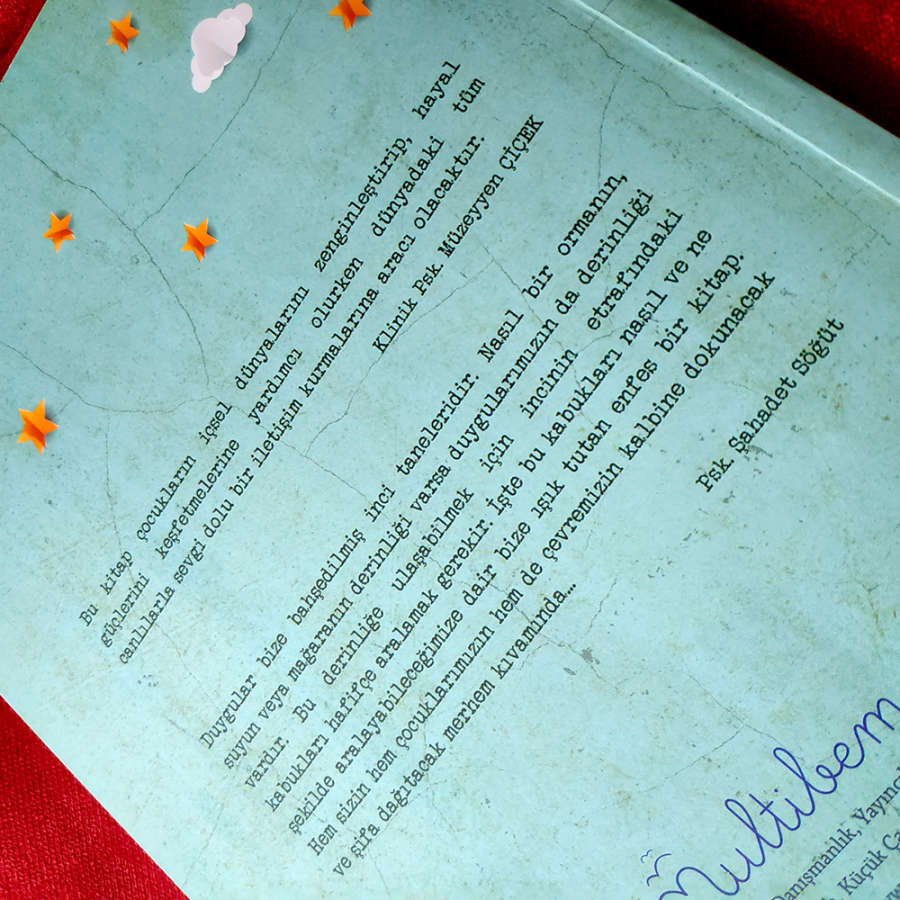 Bu kitap çocukların içsel dünyalarını zenginleştirip, hayal
güçlerini keşfetmelerine yardımcı olurken dünyadaki tüm
canlılarla sevgi dolu bir iletişim kurmalarına aracı olacaktır.
Klinik Psk. Müzeyyen ÇİÇEK
Duygular bize bahşedilmiş inci taneleridir. Nasıl bir ormanın,
suyun veya mağaranın derinliği varsa duygularımızın da derinliği
vardır. Bu derinliğe ulaşabilmek için incinin etrafındaki
kabukları hafifçe aralamak gerekir. İşte bu kabukları nasıl ve ne
şekilde aralayabileceğimize dair bize ışık tutan enfes bir kitap.
Hem sizin hem çocuklarımızın hem de çevremizin kalbine dokunacak
ve şifa dağıtacak merhem kıvamında...
Psk. Şahadet Söğüt
multibem
Danışmanlık,
Küçük